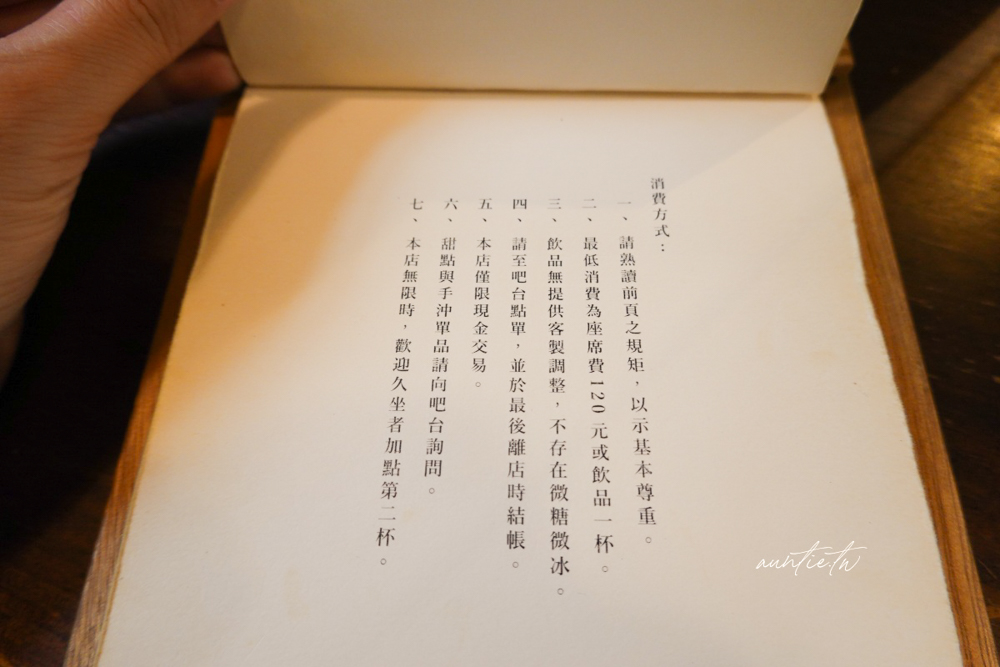 消費方式：
一、請熟讀前頁之規矩，以示基本尊重。
二、最低消費為座席費120元或飲品一杯。
三、飲品無提供客製調整，不存在微糖微冰。
四、請至吧台點單，並於最後離店時結帳。
五、本店僅限現金交易。
六、甜點與手沖單品請向吧台詢問。
七、本店無限時，歡迎久坐者加點第二杯。
auntie.tw